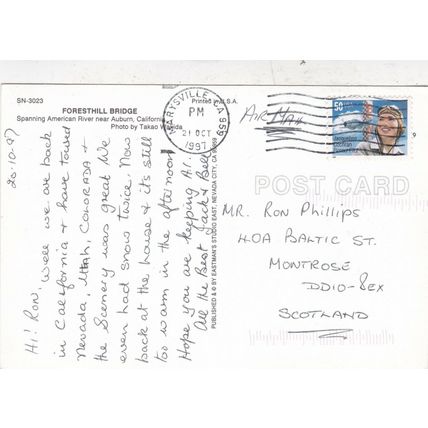 SN-3023
FORESTHILL BRIDGE
Spanning American River near Auburn, California
Photo by Takao
Printed in U.S.A.
MARYSVILLE, CA 959
PM
21 OCT
1997
AIR MAIL
50
Jacqueline
Cochran
POST CARD
PUBLISHED & © BY EASTMAN'S STUDIO EAST, NEVADA CITY, CA 95959
20.10.97
Hi! Ron, Well we are back
in California & have toured
Nevada, Utah, Colorada &
the Scenery was great We
even had snow twice. Now
back at the house & it's still
too warm in the afternoon
Hope you are keeping A.1.
All the Best Jack & Bell
Mr. Ron Phillips
40A Baltic St.
Montrose
DD10-8EX
Scotland